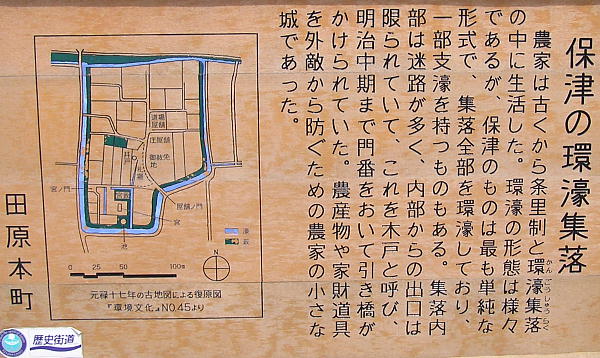 保津の環濠集落
かんごうしゅうらく
農家は古くから条里制と環濠集落
の中に生活した。環濠の形態は様々
であるが、保津のものは最も単純な
形式で、集落全部を環濠しており、
一部支濠を持つものもある。集落内
部は迷路が多く、内部からの出口は
限られていて、これを木戸と呼び、
明治中期まで門番をおいて引き橋が
かけられていた。農産物や家財道具
を外敵から防ぐための農家の小さな
城であった。
道場屋舗
庄屋舗
御赦免地
宮ノ門
屋舗ノ門
宮
池
濠
藪
N
0 25 50 100m
元禄十七年の古地図による復原図
『環境文化』NO.45より
田原本町
歴史街道